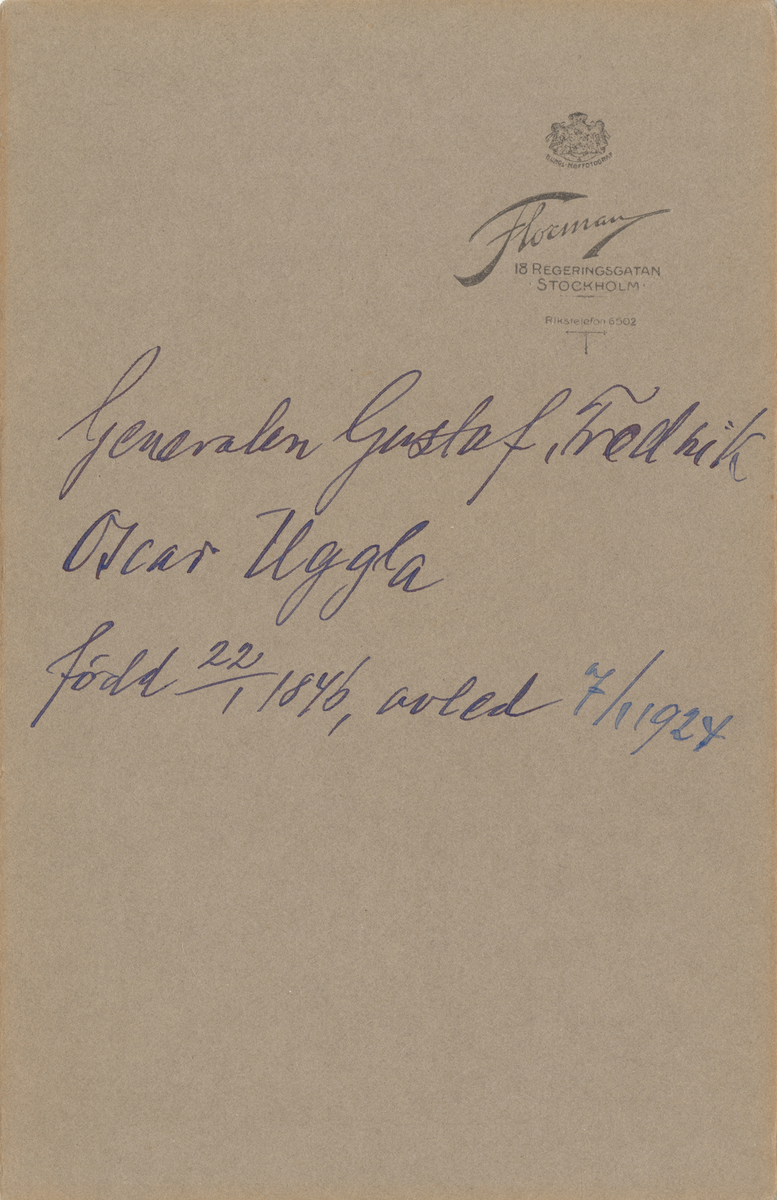 KUNGL. HOFFOTOGRAF
Florman
18 REGERINGSGATAN
· STOCKHOLM ·
Rikstelefon 6502
Generalen Gustaf, Fredrik
Oscar Uggla
född 22/1 1846, avled 7/1 1924